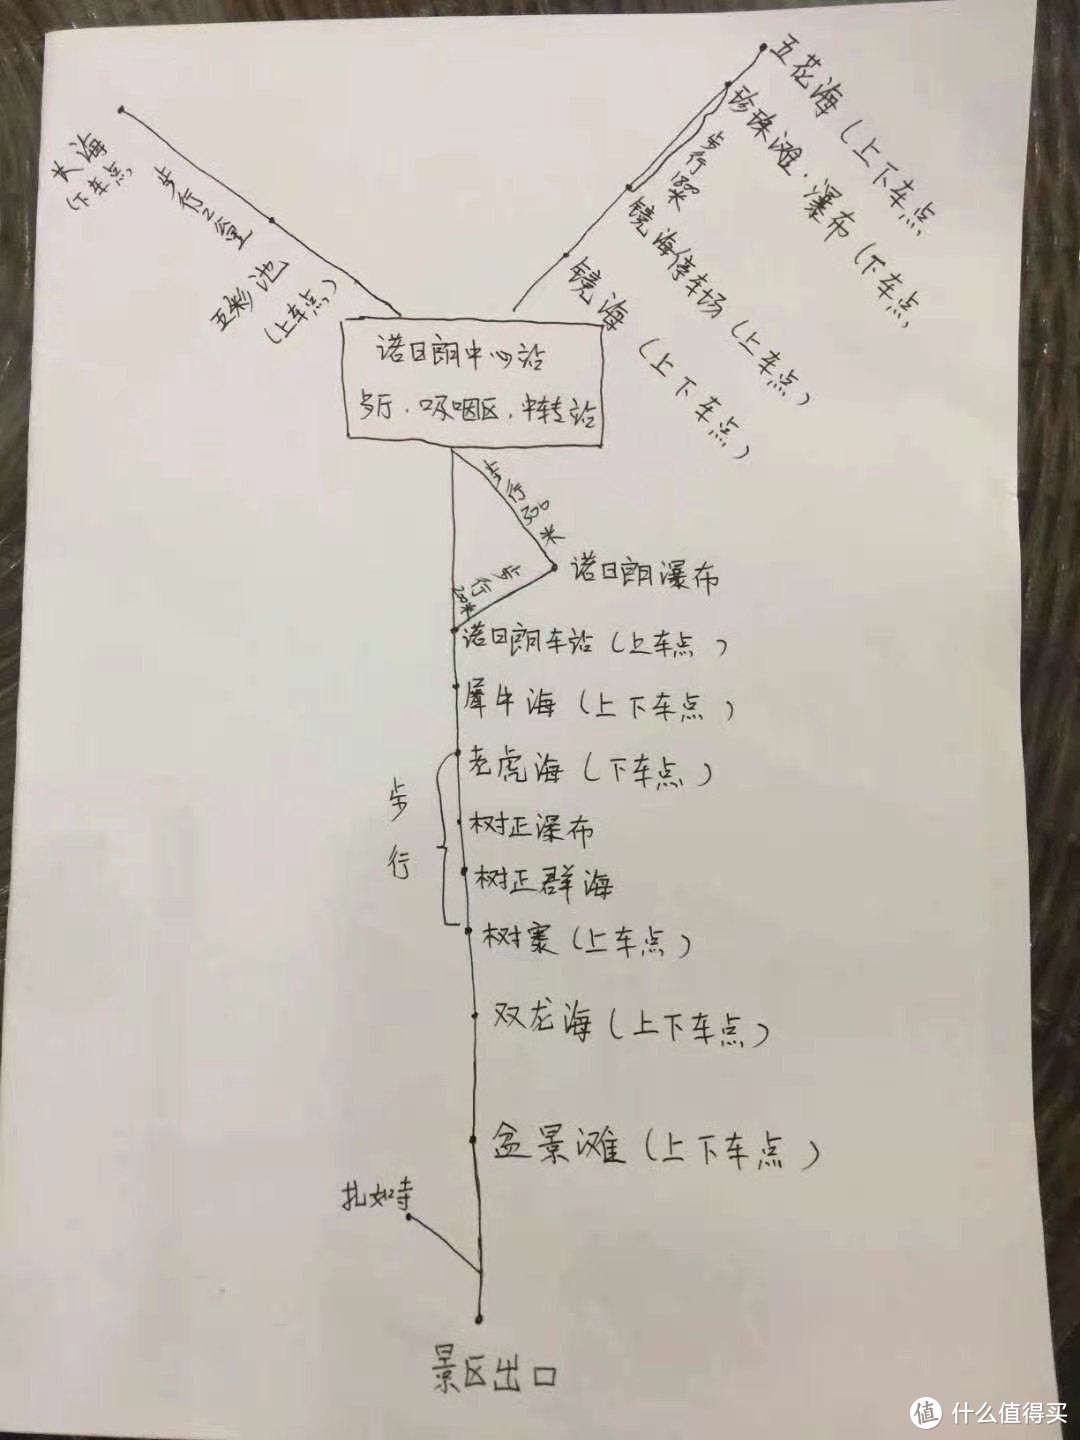 五花海（上下车点）
珍珠滩.瀑布（下车点）
步行
镜海停车场（上车点）
镜海（上下车点）
长海
（下车点）
步行2公里
五彩池
（上车点）
诺日朗中心站
歺厅.吸咽区.中转站
步行300米
步行
200米
诺日朗瀑布
诺日朗车站（上车点）
犀牛海（上下车点）
老虎海（下车点）
步行
树正瀑布
树正群海
树寨（上车点）
双龙海（上下车点）
盆景滩（上下车点）
扎如寺
景区出口
值 什么值得买